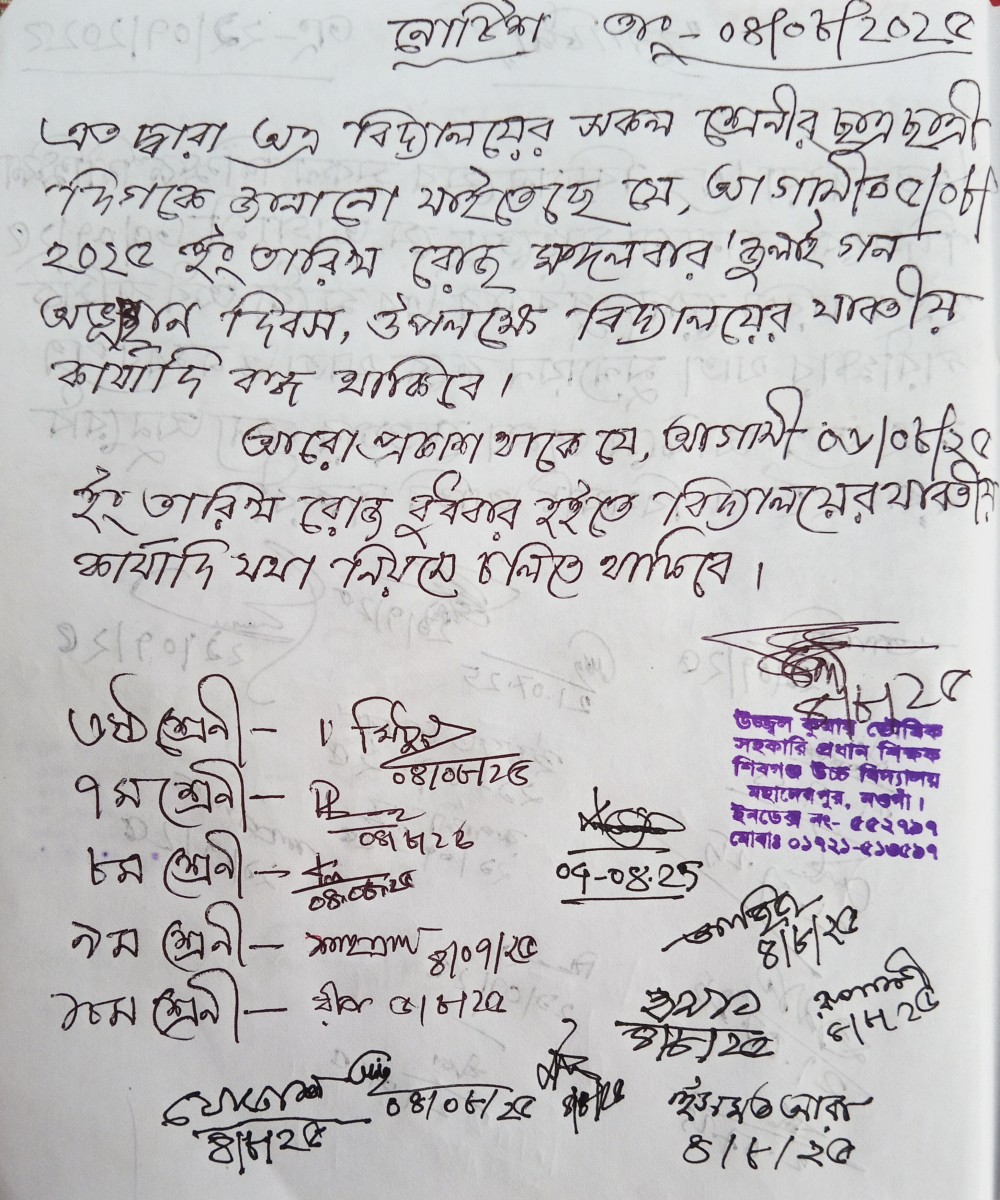 নোটিশ তাং - ০৪/০৮/২০২৫
এত দ্বারা অত্র বিদ্যালয়ের সকল শ্রেনীর ছাত্র ছাত্রী
দিগকে জানানো যাইতেছে যে, আগামী ০৫/০৮/
২০২৫ ইং তারিখ রোজ মঙ্গলবার 'জুলাই গন
অভ্যুত্থান দিবস, উপলক্ষে বিদ্যালয়ের যাবতীয়
কার্যাদি বন্ধ থাকিবে।
আরো প্রকাশ থাকে যে, আগামী ০৬/০৮/২৫
ইং তারিখ রোজ বুধবার হইতে বিদ্যালয়ের যাবতীয়
কার্যাদি যথা নিয়মে চলিতে থাকিবে।
৪/৮/২৫
উজ্জ্বল কুমার ভৌমিক
সহকারি প্রধান শিক্ষক
শিবগঞ্জ উচ্চ বিদ্যালয়
মহাদেবপুর, নওগাঁ।
ইনডেক্স নং- ৫৫২৭৯৭
মোবাঃ ০১৭২১-৫১৩৫১৭
৬ষ্ঠ শ্রেনী -
০৪/০৮/২৫
৭ম শ্রেনী -
০৪/৮/২৫
৮ম শ্রেনী -
০৪.০৮.২৫
04-08.25
৯ম শ্রেনী - ৪/০৭/২৫
৪/৮/২৫
১০ম শ্রেনী - ৫/৮/২৫
৪/৮/২৫
৪/৮/২৫
০৪/০৮/২৫
৪/৮/২৫
৪/৮/২৫
ইসমত আরা
৪/৮/২৫